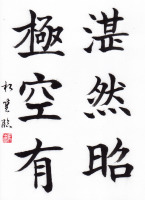 湛然昭
極空有